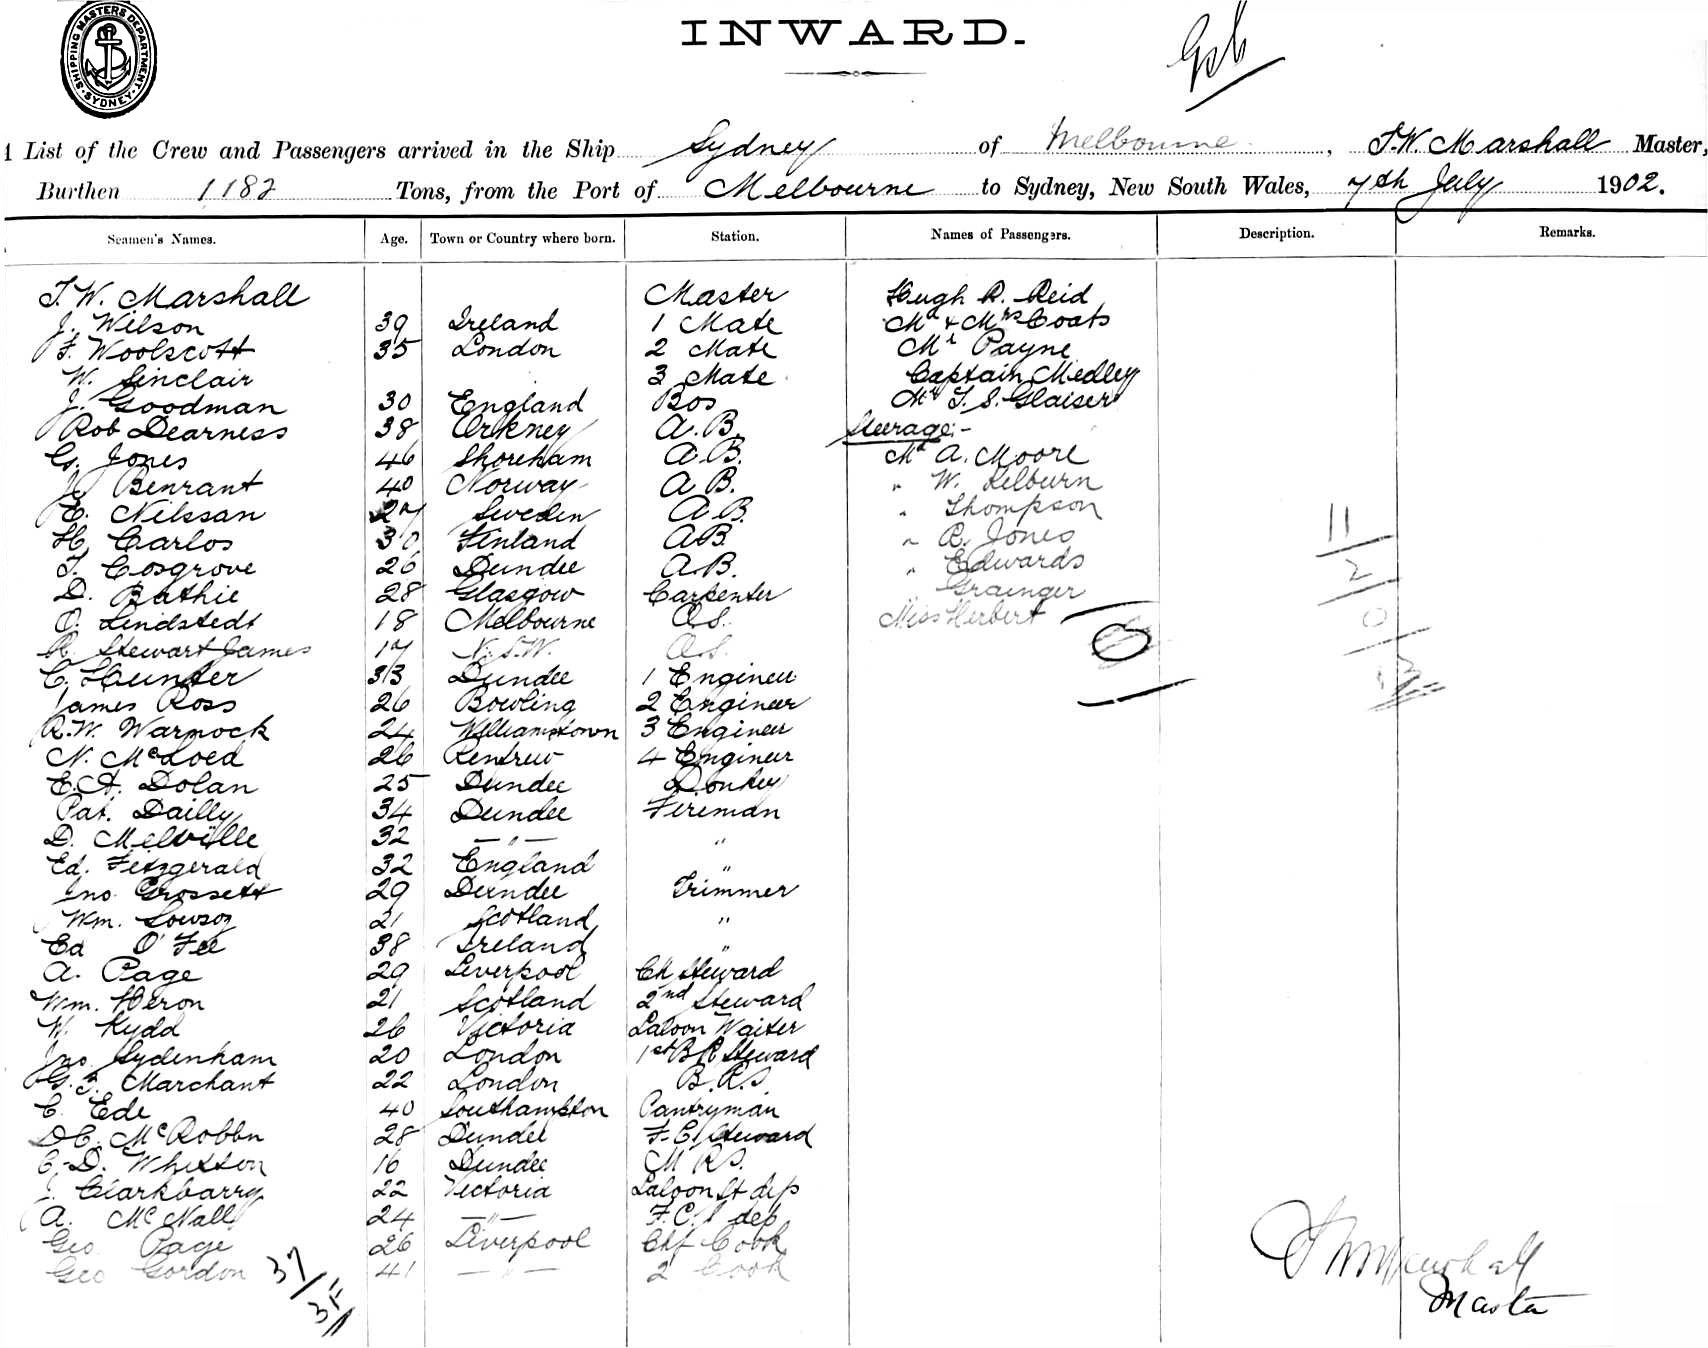 SHIPPING MASTERS DEPARTMENT. SYDNEY.
INWARD.
List of the Crew and Passengers arrived in the Ship Sydney of Melbourne, T.W. Marshall Master,
Burthen 1182 Tons, from the Port of Melbourne to Sydney, New South Wales, 7th July 1902.
Seamen's Names. Age. Town or Country where born. Station. Names of Passengers. Description. Remarks.
T. W. Marshall Master Hugh R. Reid
J. Wilson 39 Ireland 1 Mate Mr & Mrs Coats
F. Woolscott 35 London 2 Mate Mr Payne
W. Sinclair 3 Mate Captain Medley
J. Goodman 30 England Bos Mr T. S. Glaiser
Rob Dearness 38 Orkney A.B. Steerage:-
G. Jones 46 Shoreham A.B. Mr A. Moore
J. Benrant 40 Norway A B. " W. Kelburn
E. Nilssan 27 Sweden A B. " Thompson
H. Carlos 30 Finland A.B. " R. Jones
T. Cosgrove 26 Dundee A.B. " Edwards
D. Bathie 28 Glasgow Carpenter " Grainger
O. Lindstedt 18 Melbourne O.S. Miss Herbert
R. Stewart James 17 N.S.W. O.S.
C. Hunter 33 Dundee 1 Engineer
James Ross 26 Bowling 2 Engineer
R.W. Warnock 24 Williamstown 3 Engineer
N. McLoed 26 Renfrew 4 Engineer
E.A. Dolan 25 Dundee Donkey
Pat. Dailly 34 Dundee Fireman
D. Melville 32 — " — "
Ed. Fitzgerald 32 England "
Jno. Crossett 29 Dundee Trimmer
Wm. 21 Scotland "
Ed O'Fee 38 Ireland "
A. Page 29 Liverpool Ch Steward
Wm. Heron 21 Scotland 2nd Steward
W. Kydd 26 Victoria Saloon Waiter
Jno. Sydenham 20 London 1st B R Steward
G. F. Marchant 22 London B.R.S
C. Ede 40 Southampton Pantryman
D C. McRobbn 28 Dundee F.C. Steward
C. D. Whitton 16 Dundee M R S.
J. Clarkbarry 22 Victoria Saloon St dep
A. McNall 24 — " — F.C.S dep
Geo Page 26 Liverpool Chf Cook
Geo Gordon 41 — " — 2 Cook
37
Master